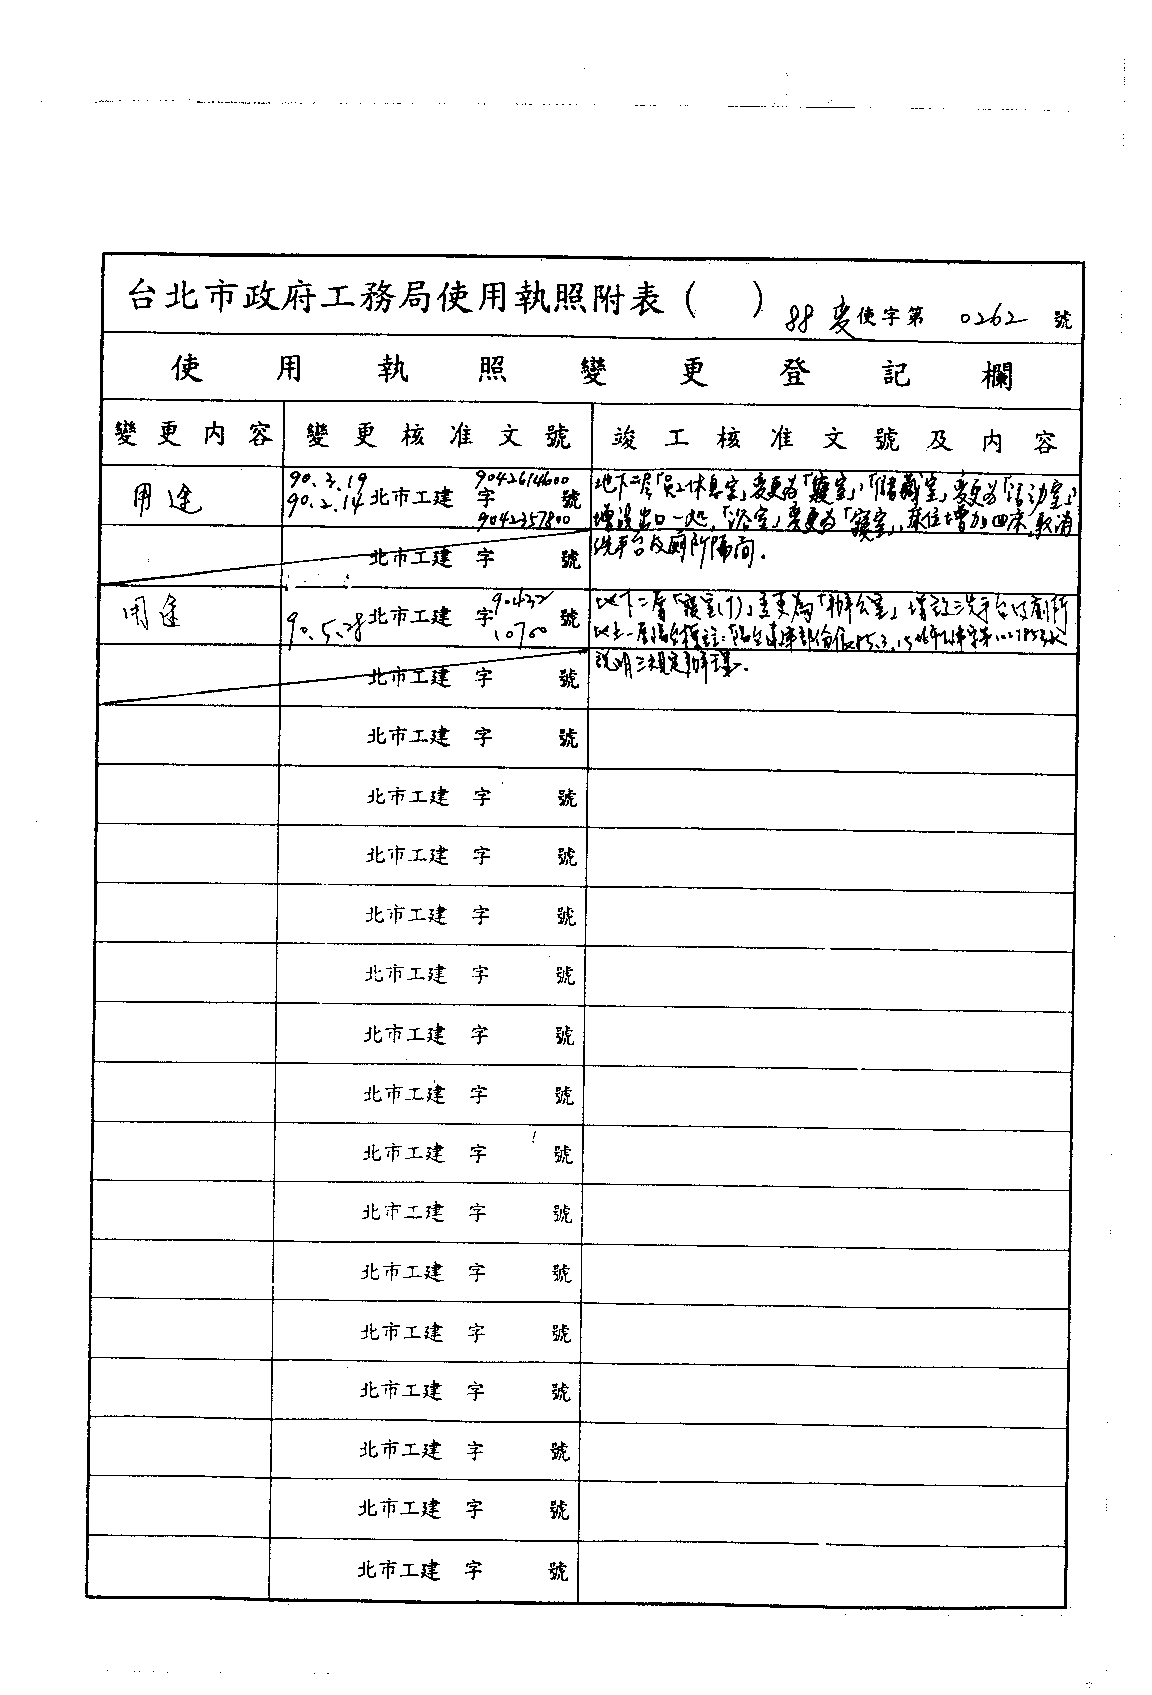 台北市政府工務局使用執照附表（　） 88 変使字第 0262 號
使用執照變更登記欄
變更內容 變更核准文號 竣工核准文號及內容
用途 90.3.19 9042614600
90.2.14 北市工建 字 號
9042357800
地下二层「員工休息室」変更為「寢室」,「儲藏室」変更為「活动室」,
增設出口一处,「浴室」変更為「寢室」,床位增加四床,取消
洗手台及廁所隔间.
北市工建 字 號
用途 90.5.28 北市工建 字 90432 號
10700
地下二層「寢室(1)」変更為「辦公室」增設二洗手台及廁所
說明三規定辦理.
北市工建 字 號
北市工建 字 號
北市工建 字 號
北市工建 字 號
北市工建 字 號
北市工建 字 號
北市工建 字 號
北市工建 字 號
北市工建 字 號
北市工建 字 號
北市工建 字 號
北市工建 字 號
北市工建 字 號
北市工建 字 號
北市工建 字 號
北市工建 字 號